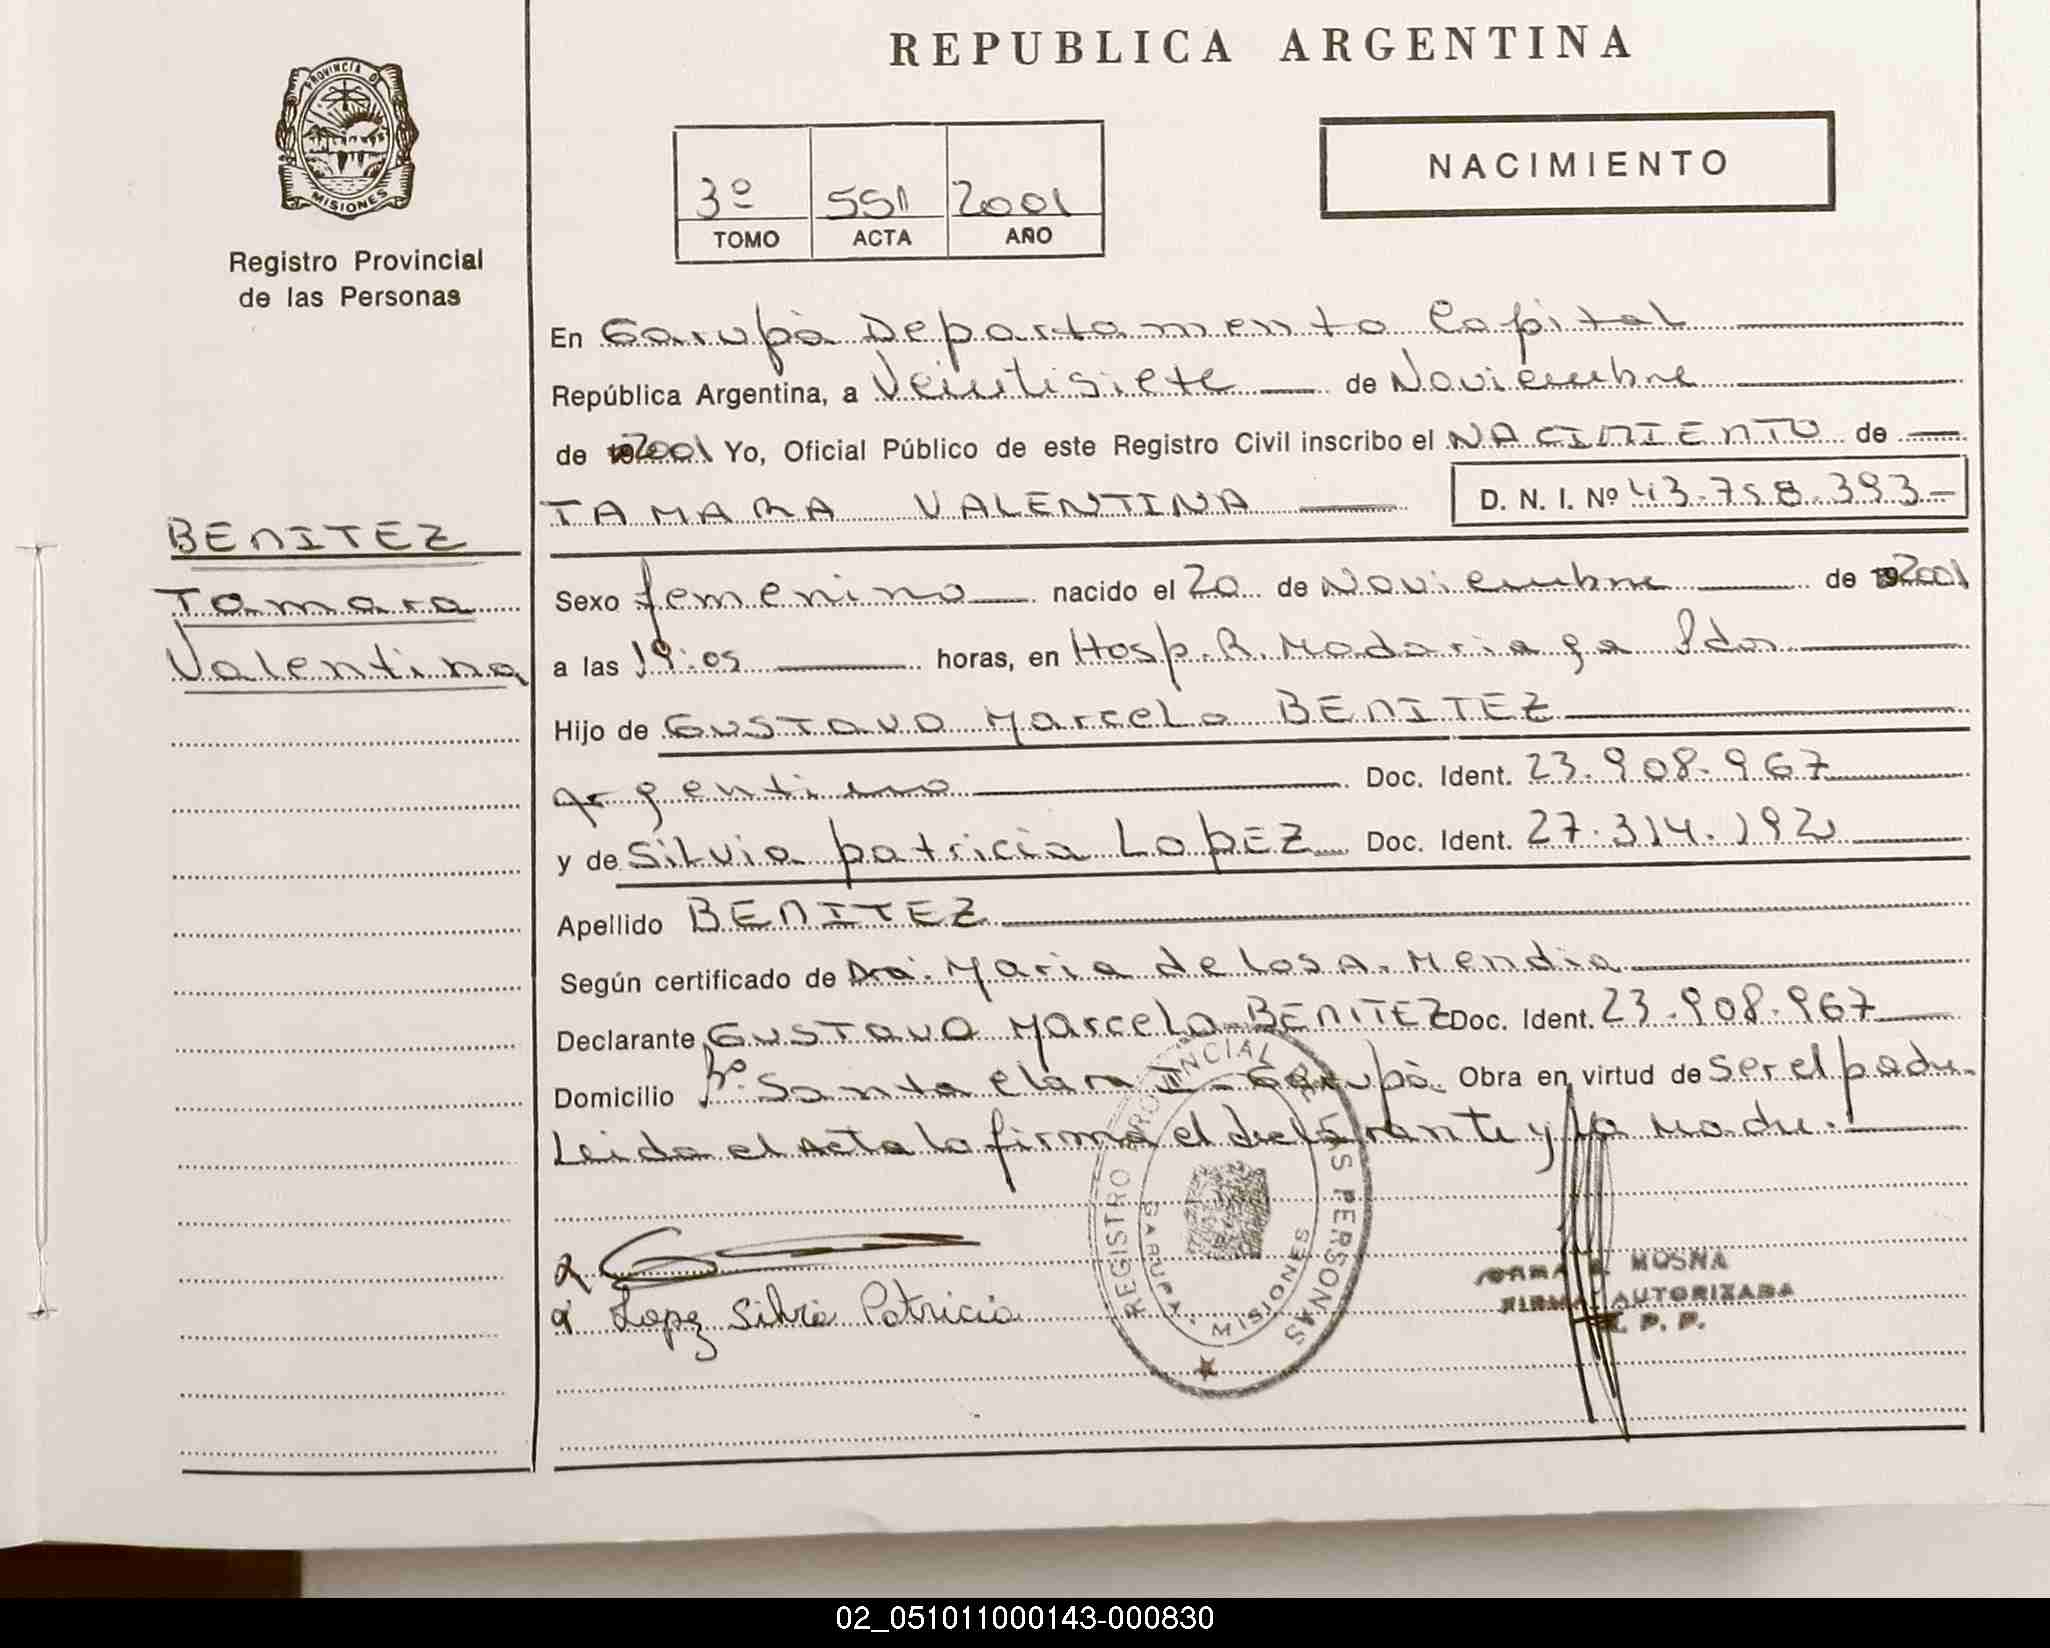 REPUBLICA ARGENTINA
PROVINCIA DE
MISIONES
Registro Provincial
de las Personas
NACIMIENTO
3º 551 2001
TOMO ACTA AÑO
En Garupá Departamento Capital
República Argentina, a Veintisiete de Noviembre
de 2001 Yo, Oficial Público de este Registro Civil inscribo el NACIMIENTO de
TAMARA VALENTINA D. N. I. Nº 43.758.393-
BENITEZ
Tamara
Valentina
Sexo femenino nacido el 20 de Noviembre de 2001
a las 19:05 horas, en Hosp. R. Madariaga Pdas.
Hijo de GUSTAVO Marcelo BENITEZ
argentino Doc. Ident. 23.908.967
y de Silvia patricia LopEZ Doc. Ident. 27.314.192
Apellido BENITEZ
Según certificado de Dra. Maria de Los A. Mendia
Declarante GUSTAVO Marcelo BENITEZ Doc. Ident. 23.908.967
Domicilio Bº. Santa Clara I - Garupá. Obra en virtud de ser el padre.
Leida el Acta la firma el declarante y la madre.
REGISTRO PROVINCIAL DE LAS PERSONAS
GARUPA - MISIONES
Lopez Silvia Patricia
NORMA MOSNA
FIRMA AUTORIZADA
R. P. P.
02_051011000143-000830